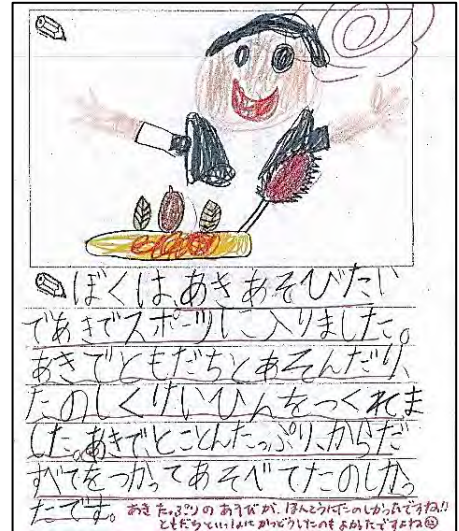 ぼくは、あきあそびたい
であきでスポーツに入りました。
あきでともだちとあそんだり、
たのしくけいひんをつくれま
した。あきで、とことんたっぷり、からだ
すべてをつかってあそべてたのしかっ
たです。
あきたっぷりのあそびが、ほんとうにたのしかったですね!!
ともだちといっしょにかつどうしたのもよかったですね